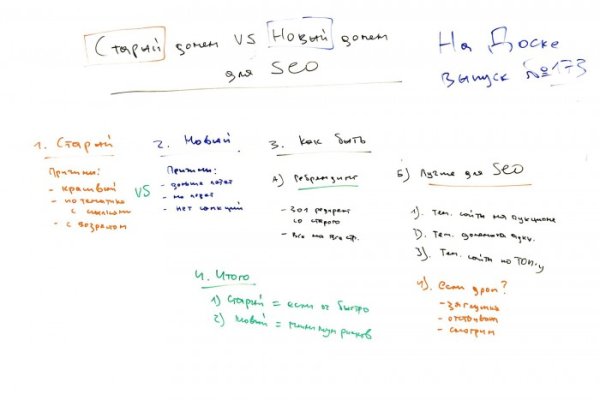 Старый домен VS Новый домен
для SEO
На Доске
выпуск №173
1. Старый
Причины:
- красивый
- по тематике
с ссылками
- с возрастом
VS
2. Новый
Причины:
- дольше
- не
- нет санкций
3. Как быть
А) Ребрендинг
- 301 редирект
со старого
- Все на все стр.
Б) Лучше для SEO
1). Тем. сайты на аукционе
2). Тем. домена аукц.
3). Тем. сайты по ТОП-у
4). если дроп?
- заглушка
- отстоится
- смотрим
4. Итого
1) Старый = если ок быстро
2) Новый = минимум рисков